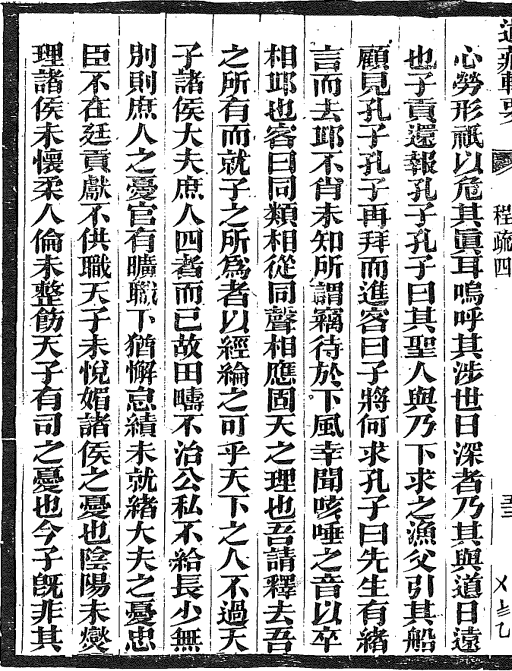 心勞形祇以危其眞耳嗚呼其涉世日深者乃其與道日遠
也子貢還報孔子孔子曰其聖人與乃下求之漁父引其船
顧見孔子孔子再拜而進客曰子將何求孔子曰先生有緒
言而去耶不肯未知所謂竊待於下風幸聞咳唾之音以卒
相耶也客曰同類相從同聲相應固天之理也吾請釋去吾
之所有而就子之所爲者以經綸之可乎天下之人不過天
子諸侯大夫庶人四者而已故田疇不治公私不給長少無
別則庶人之憂官有曠職下猶懈怠績未就緒大夫之憂忠
臣不在廷貢獻不供職天子未悅媚諸侯之憂也陰陽未爕
理諸侯未懷柔人倫未整飭天子有司之憂也今子旣非其
程疏四